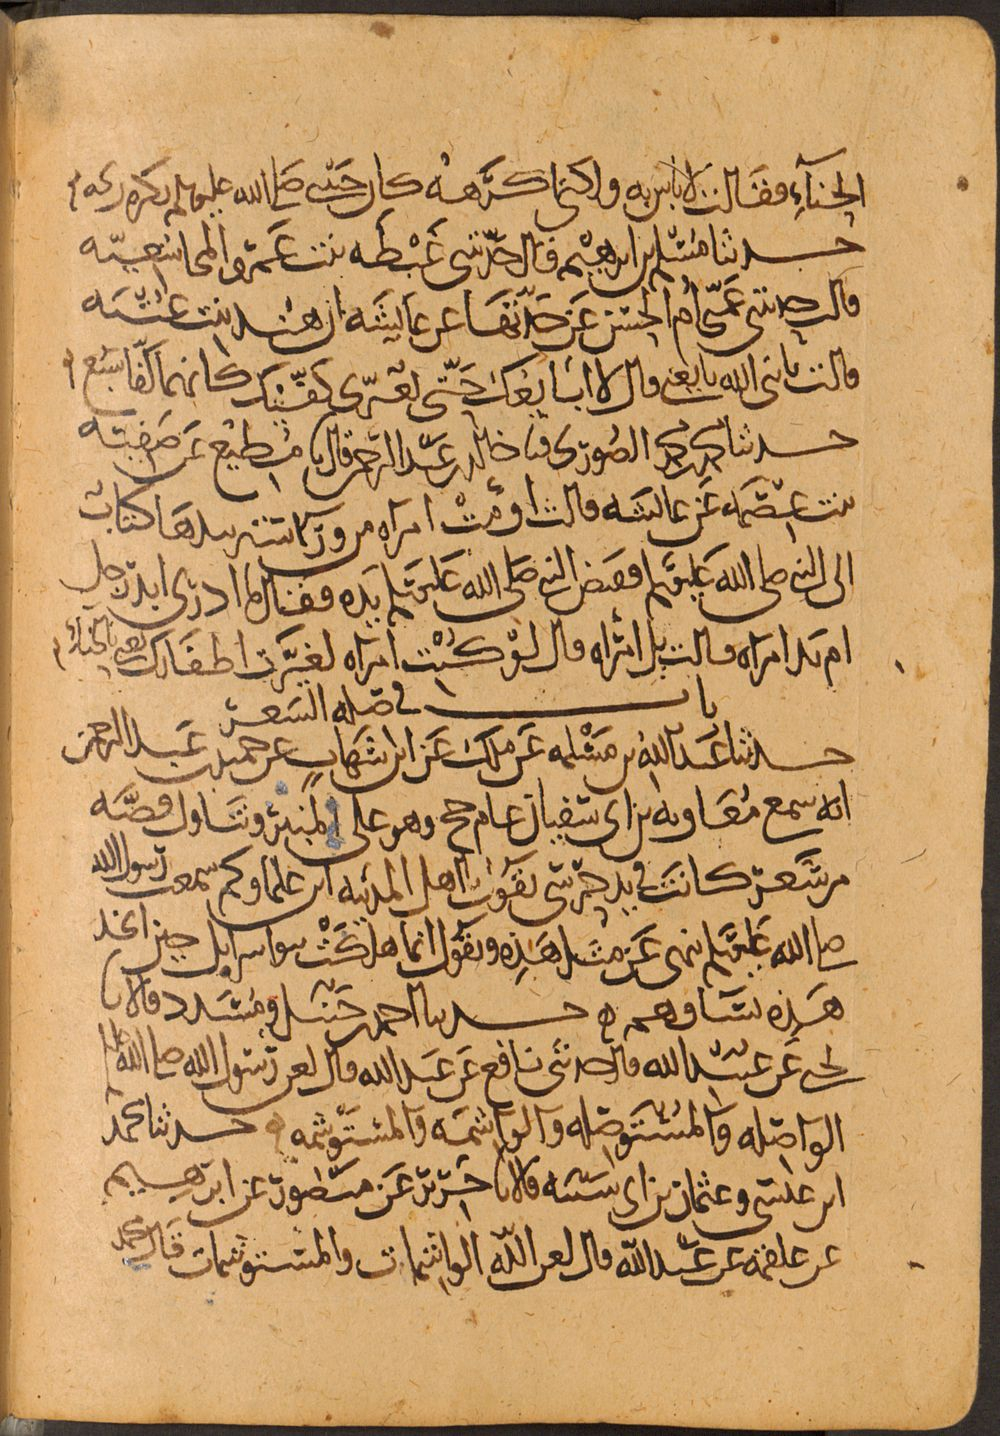 الحناء فقالت لا باس به ولكني اكرهه كان حبي صلى الله عليه وسلم يكره ريحه
حدثنا مسلم بن ابرهيم قال حدثتني غبطه بنت عمرو المجاشعيه
قالت حدثتني عمتي ام الحسن عن جدتها عن عايشه ان هند بنت عتبه
قالت يا نبي الله بايعني قال لا ابايعك حتى تغيري كفيك كانهما كفا سبع
حدثنا محمد بن محمد الصوري نا خالد بن عبد الرحمن قال نا مطيع عن صفيه
بنت عصمه عن عايشه قالت اومت امراه من ورا ستر بيدها كتاب
الى النبي صلى الله عليه وسلم فقبض النبي صلى الله عليه وسلم يده فقال ما ادري ايد رجل
ام يد امراه قالت بل امراه قال لو كنت امراه لغيرت اظفارك يعني بالحناء
باب في صله الشعر
حدثنا عبد الله بن مسلمه عن ملك عن ابن شهاب عن حميد بن عبد الرحمن
انه سمع معاويه بن ابي سفيان عام حج وهو على المنبر وتناول قصه
من شعر كانت في يد حرسي يقول يا اهل المدينه اين علماوكم سمعت رسول الله
صلى الله عليه وسلم ينهى عن مثل هذه ويقول انما هلكت بنو اسرايل حين اتخذ
هذه نساوهم حدثنا احمد بن حنبل ومسدد قالا نا
يحيى عن عبيد الله قال حدثني نافع عن عبد الله قال لعن رسول الله صلى الله عليه
الواصله والمستوصله والواشمه والمستوشمه حدثنا محمد
ابن عيسى وعثمان بن ابي شيبه قالا نا جرير عن منصور عن ابرهيم
عن علقمه عن عبد الله قال لعن الله الواشمات والمستوشمات قال محمد